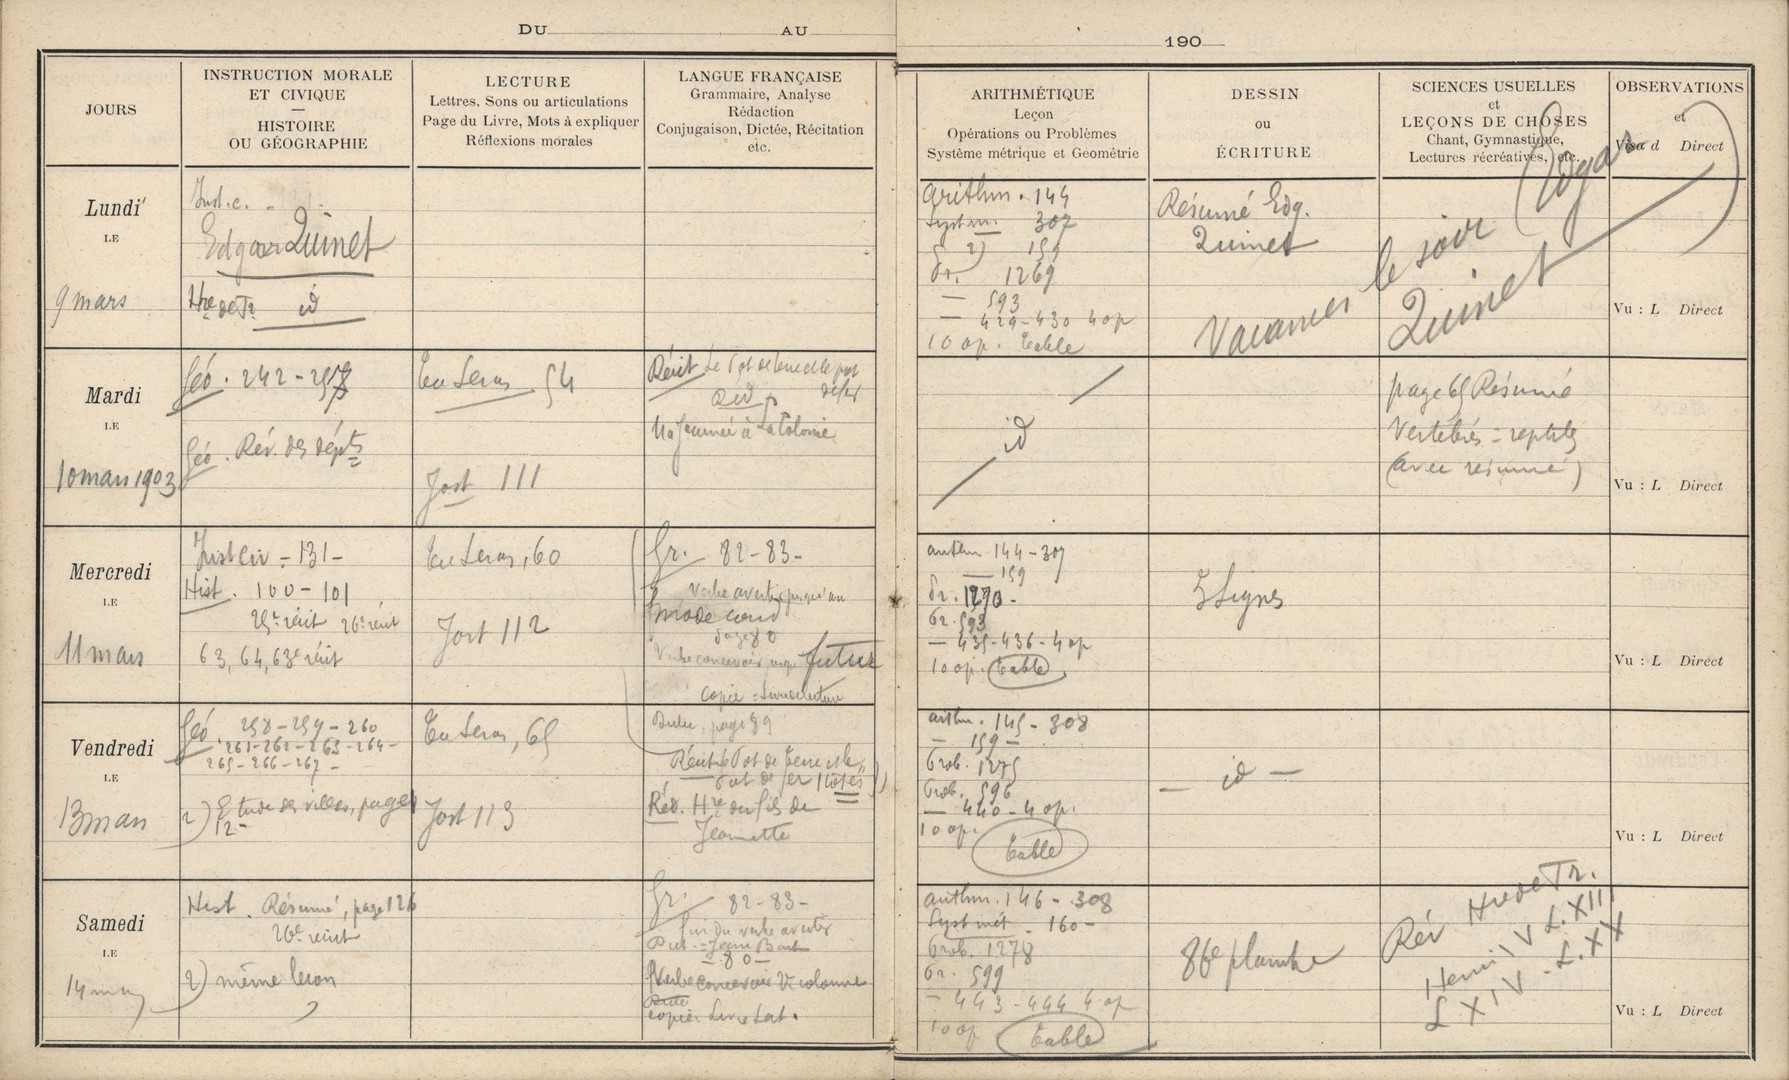 DU AU
190
JOURS
INSTRUCTION MORALE
ET CIVIQUE
HISTOIRE
OU GÉOGRAPHIE
LECTURE
Lettres, Sons ou articulations
Page du Livre, Mots à expliquer
Réflexions morales
LANGUE FRANÇAISE
Grammaire, Analyse
Rédaction
Conjugaison, Dictée, Récitation
etc.
ARITHMÉTIQUE
Leçon
Opérations ou Problèmes
Système métrique et Géométrie
DESSIN
ou
ÉCRITURE
SCIENCES USUELLES
et
LEÇONS DE CHOSES
Chant, Gymnastique,
Lectures récréatives, etc.
OBSERVATIONS
et
Visa d Direct
Lundi
LE
9 mars
Inst. c.
Edgar Quinet
Hre de Fr id
Arithm. 144
System. 307
2) 159
Pr. 1269
— 593
— 429-430 4 op
10 op. Table
Résumé Edg.
Quinet
Vacances le soir (Edgar
Quinet)
Vu : L Direct
Mardi
LE
10 mars 1903
Géo. 242-257
Géo. Rév. des dépts
Tu Seras 54
Jost 111
Récit Le Pot de terre et le pot
de fer
Réd
Une Journée à la Colonie
id
page 65 Résumé
Vertébrés = reptiles
(avec résumé)
Vu : L Direct
Mercredi
LE
11 mars
Inst civ - 131 -
Hist. 100 - 101
25e récit 26e récit
63, 64, 65e récit
Tu Seras, 60
Jost 112
Gr. 82-83-
Verbe avertir jusqu'au
mode cond
page 80
Verbe concevoir jusqu' futur
Copie = Livre lecture
arithm 144 - 307
— 159
Pr. 1270 -
Pr. 593
— 435-436-4 op
10 op. Table
5 Lignes
Vu : L Direct
Vendredi
LE
13 mars
Géo. 258-259-260
261-262-263-264-
265-266-267-
2) Etude des villes, pages
12-
Tu Seras, 65
Jost 113
Dictée, page 89
Récit le Pot de terre et le
Pot de fer
Réd. Hre du fils de
Jeannette
arithm. 145 - 308
— 159 —
Prob. 1275
Prob. 596
— 440 - 4 op.
10 op.
Table
— id —
Vu : L Direct
Samedi
LE
14 mars
Hist. Résumé, page 126
26e récit
2) même leçon
Gr. 82-83-
Fin du verbe avertir
Dict. = Jean Bart
— 80 —
Verbe concevoir 2e colonne
Dictée
copie
arithm. 146 - 308
Syst mét - 160 -
Prob. 1278
Pr. 599
— 443-444 4 op
10 op Table
86e planche
Rév Hre de Fr.
Henri IV L. XIII
L XIV - L. XV
Vu : L Direct